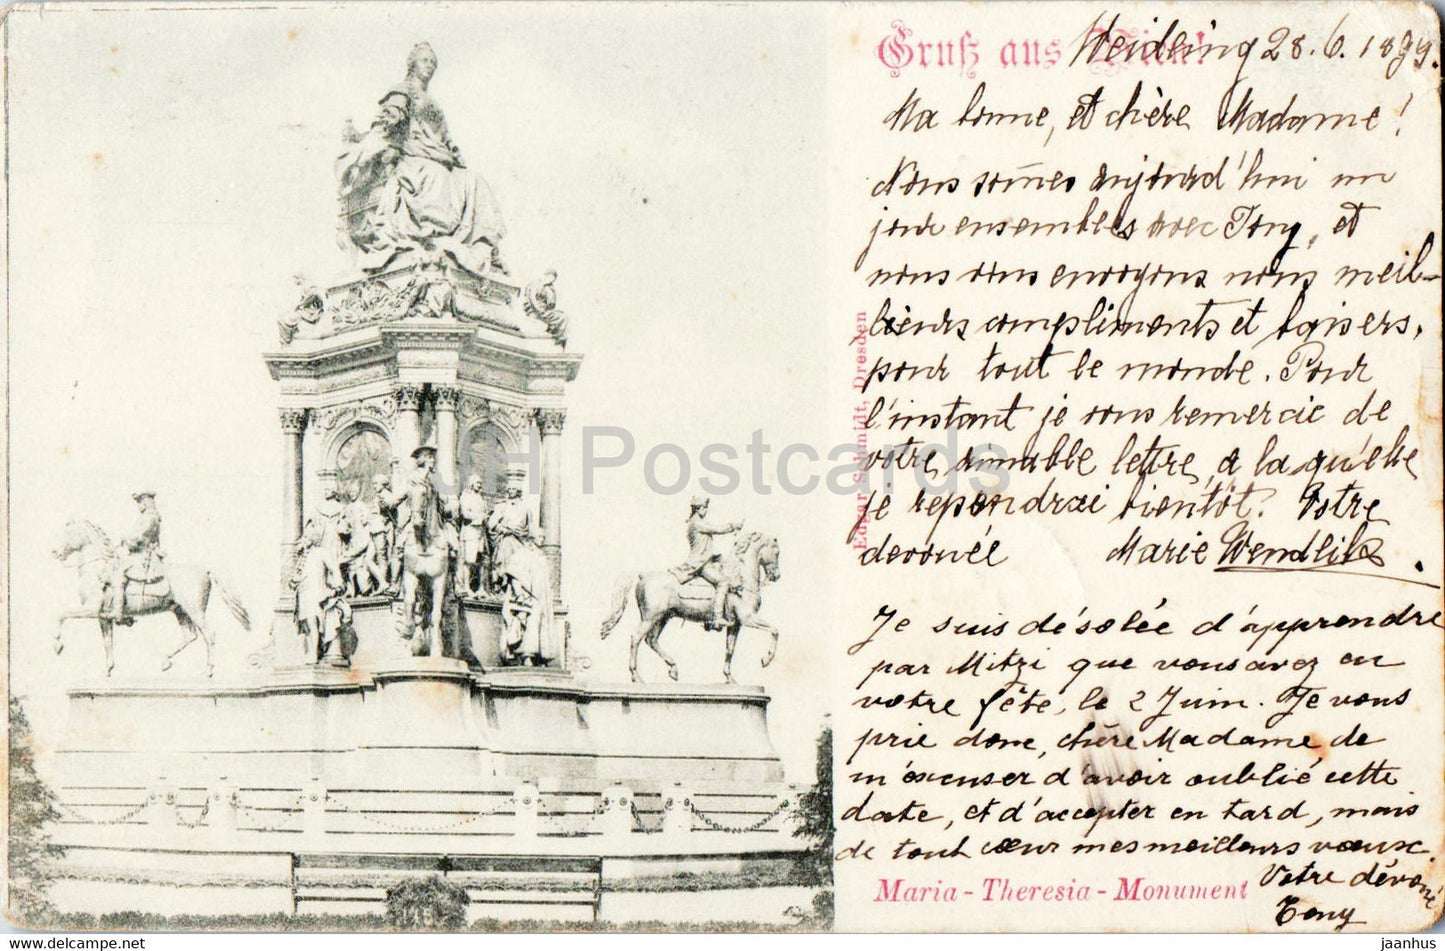 Gruß aus Wien!
Weidling 28.6.1899.
Ma bonne, et chère Madame!
Nous somes aujourd'hui un
jour ensembles avec Tony, et
nous vous envoyons nous meil-
lieurs compliments et baisers,
pour tout le monde. Pour
l'instant je vous remercie de
votre aimable lettre, a la qu'elle
je repondrai bientôt. Votre
devouée Marie Wendlik.
Je suis désolée d'apprendre
par Mitzi que vous avez eu
votre fête, le 2 Juin. Je vous
prie donc, chère Madame de
m'excuser d'avoir oublié cette
date, et d'accepter en tard, mais
de tout cœur mes meilleurs vœux.
Votre dévoué
Tony
Maria-Theresia-Monument
Edgar Schmidt, Dresden
JH Postcards
jaanhus.com